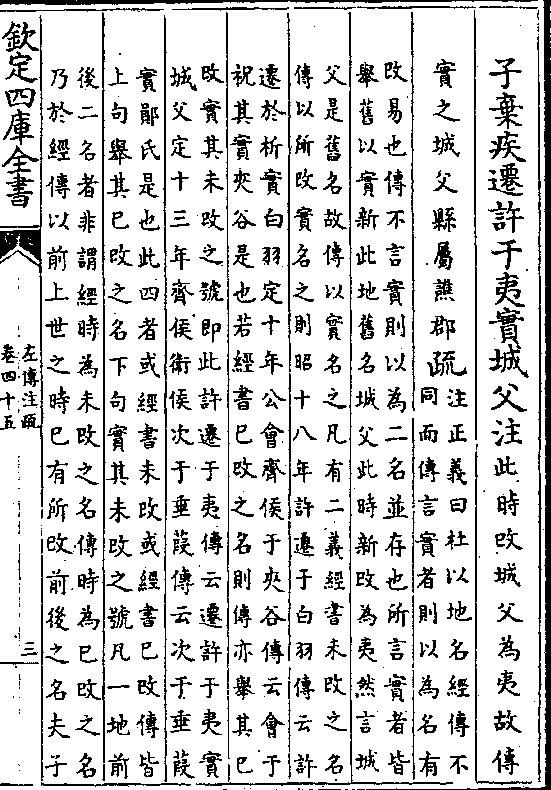 子棄疾遷許于夷實城父注此時改城父為夷故傳
實之城父縣屬譙郡疏注正義曰杜以地名經傳不
同而傳言實者則以為名有
改易也傳不言實則以為二名並存也所言實者皆
舉舊以實新此地舊名城父此時新改為夷然言城
父是舊名故傳以實名之凡有二義經書未改之名
傳以所改實名之則昭十八年許遷于白羽傳云許
遷於析實白羽定十年公會齊侯于夾谷傳云會于
祝其實夾谷是也若經書巳改之名則傳亦舉其巳
改實其未改之號即此許遷于夷傳云遷許于夷實
城父定十三年齊侯衛侯次于垂葭傳云次于垂葭
實郹氏是也此四者或經書未改或經書巳改傳皆
上句舉其巳改之名下句實其未改之號凡一地前
後二名者非謂經時為未改之名傳時為巳改之名
乃於經傳以前上世之時巳有所改前後之名夫子
欽定四庫全書
左傳注疏
卷四十五
三